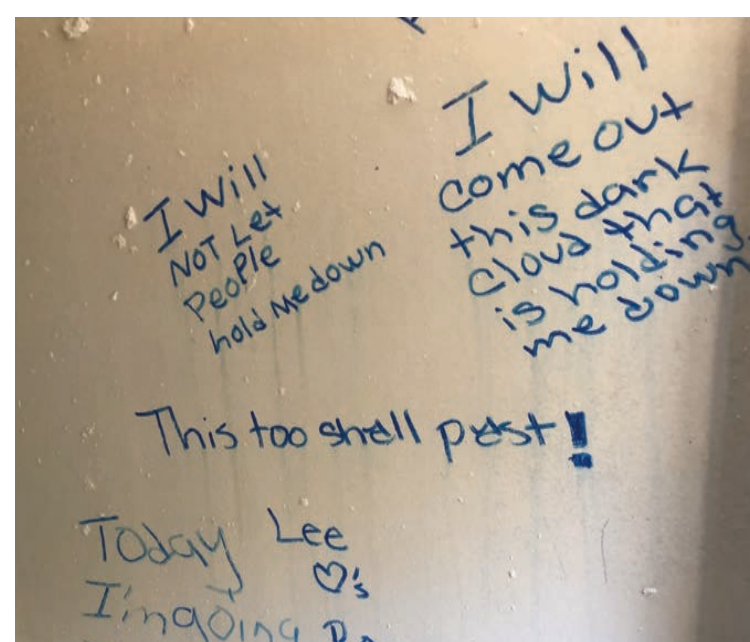 I Will
NOT Let
People
hold Me down
I will
come out
this dark
cloud that
is holding
me down
This too shall past!
Today
I'm going
Lee
♡'s